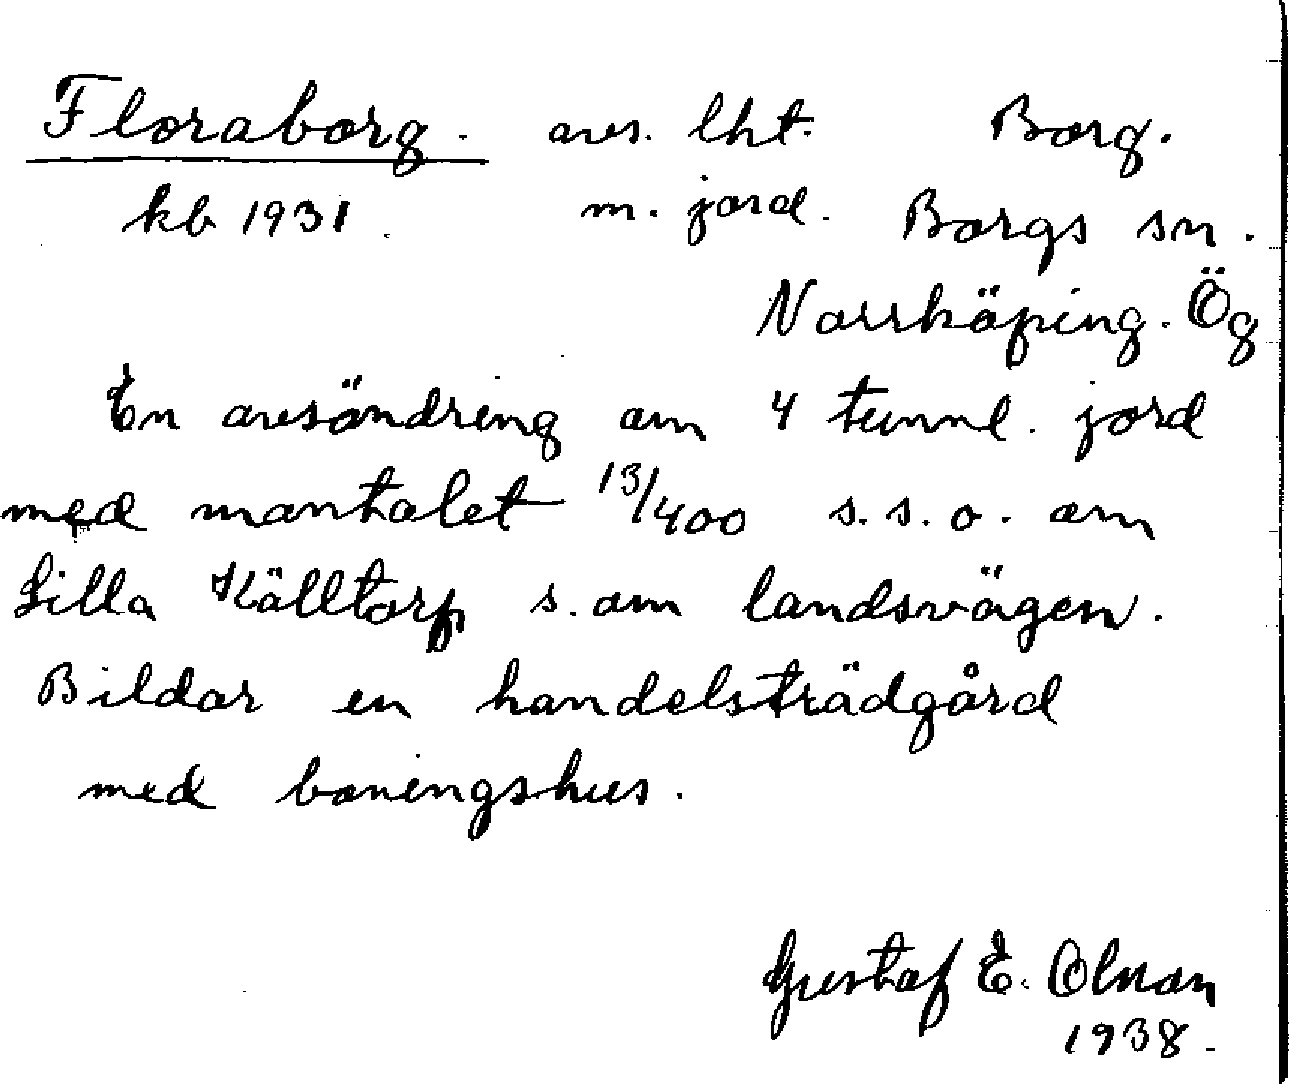 Floraborg. avs. lht. Borg.
kb 1931. m. jord. Borgs sn.
Norrköping. Ög
En avsöndring om 4 tunnl. jord
med mantalet 13/400 s.s.o. om
Lilla Källtorp s. om landsvägen.
Bildar en handelsträdgård
med boningshus.
Gustaf E. Olman
1938.